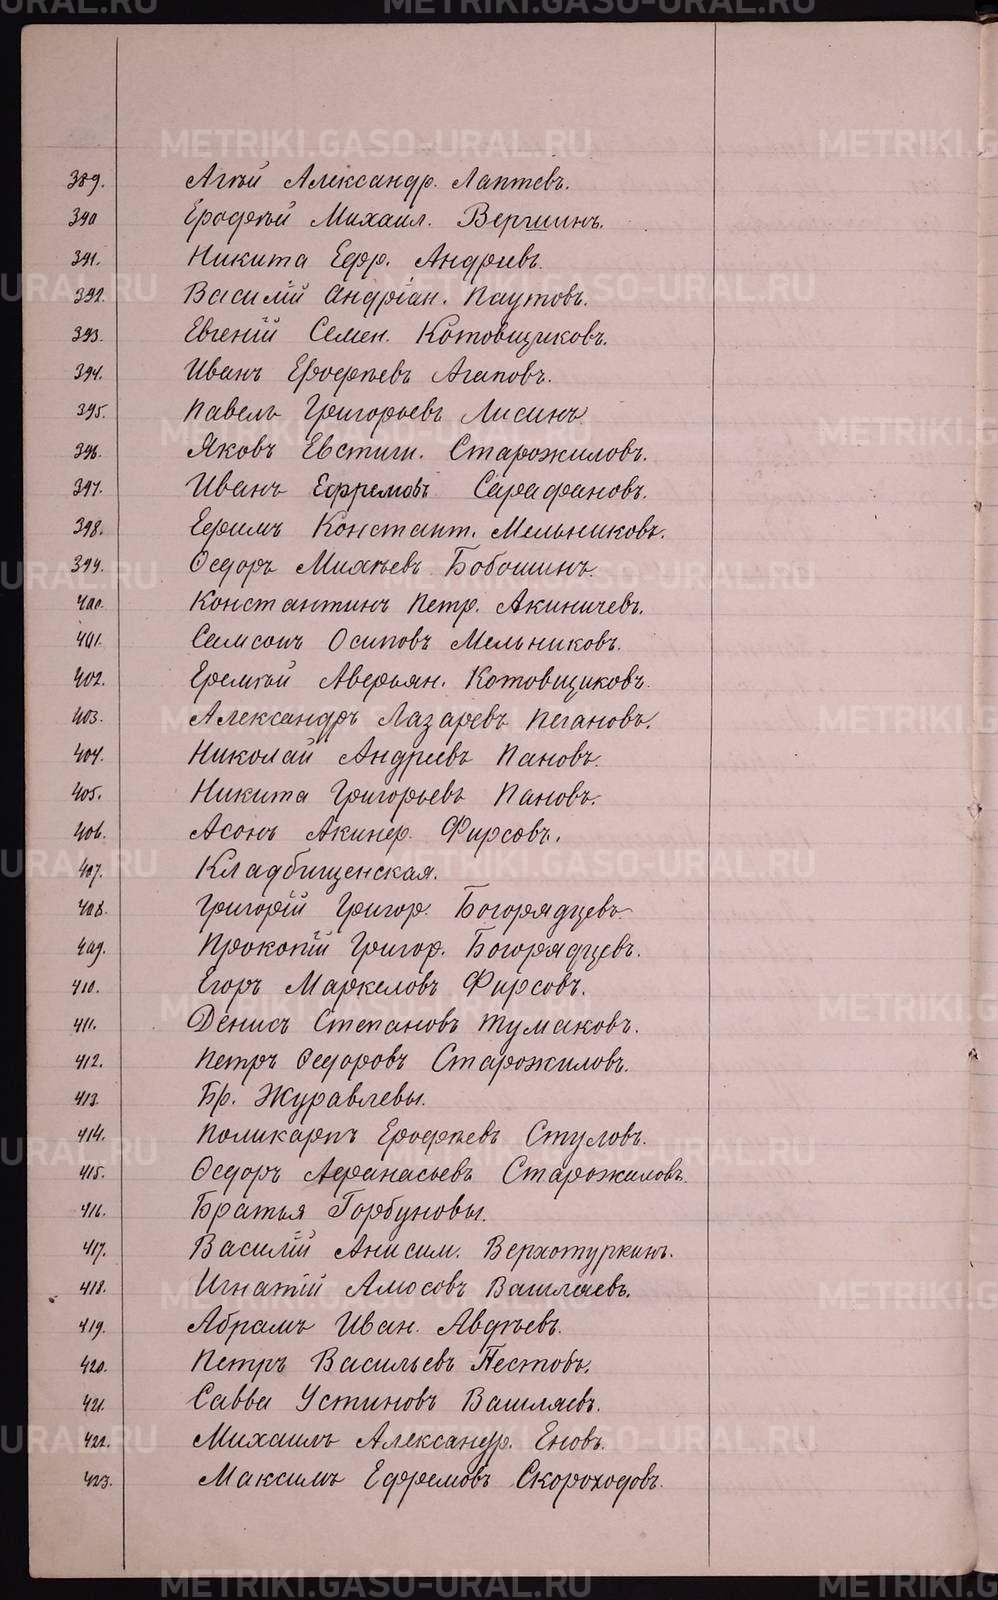 389. Агѣй Александр. Лаптевъ.
390 Ерофѣй Михаил. Вершинъ.
391. Никита Ефр. Андреевъ.
392. Василій Андріан. Паутовъ.
393. Евгеній Семен. Котовщиковъ.
394. Иванъ Ерофѣевъ Агаповъ.
395. Павелъ Григорьевъ Лисинъ.
396. Яковъ Евстигн. Старожиловъ.
397. Иванъ Ефремовъ Сарафановъ.
398. Ефимъ Констант. Мельниковъ.
399. Ѳедоръ Михѣевъ Бобошинъ.
400. Константинъ Петр. Акиничевъ.
401. Самсонъ Осиповъ Мельниковъ.
402. Еремѣй Аверьян. Котовщиковъ.
403. Александръ Лазаревъ Пегановъ.
404. Николай Андреевъ Пановъ.
405. Никита Григорьевъ Пановъ.
406. Асонъ Акинф. Фирсовъ.
407. Кладбищенская.
408. Григорій Григор. Богорядцевъ.
409. Прокопій Григор. Богорядцевъ.
410. Егоръ Маркеловъ Фирсовъ.
411. Денисъ Степановъ Тумаковъ.
412. Петръ Ѳедоровъ Старожиловъ.
413. Бр. Журавлевы.
414. Поликарпъ Ерофѣевъ Стуловъ.
415. Ѳедоръ Афанасьевъ Старожиловъ.
416. Братья Горбуновы.
417. Василій Анисим. Верхотуркинъ.
418. Игнатій Амосовъ Вашляевъ.
419. Абрамъ Иван. Авдѣевъ.
420. Петръ Васильевъ Пестовъ.
421. Савва Устиновъ Вашляевъ.
422. Михаилъ Александр. Еновъ.
423. Максимъ Ефремовъ Скороходовъ.
METRIKI.GASO-URAL.RU